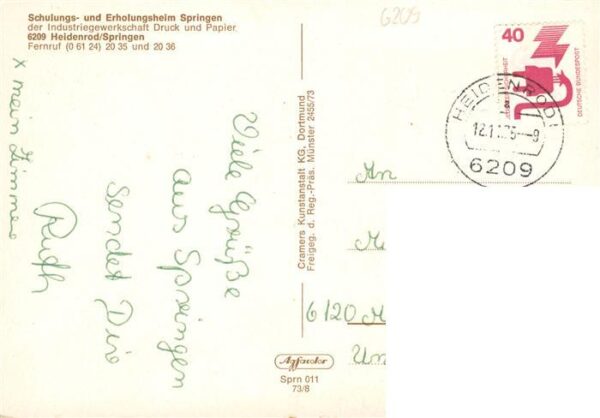 Schulungs- und Erholungsheim Springen
der Industriegewerkschaft Druck und Papier
6209 Heidenrod/Springen
Fernruf (0 61 24) 20 35 und 20 36
6209
40
DEUTSCHE BUNDESPOST
HEIDENROD 1
6209
x mein Zimmer
Viele Grüße
aus Springen
sendet Dir
Ruth
Cramers Kunstanstalt KG, Dortmund
Freigeg. d. Reg.-Präs. Münster 2455/73
An
6120
Agfacolor
Sprn 011
73/8